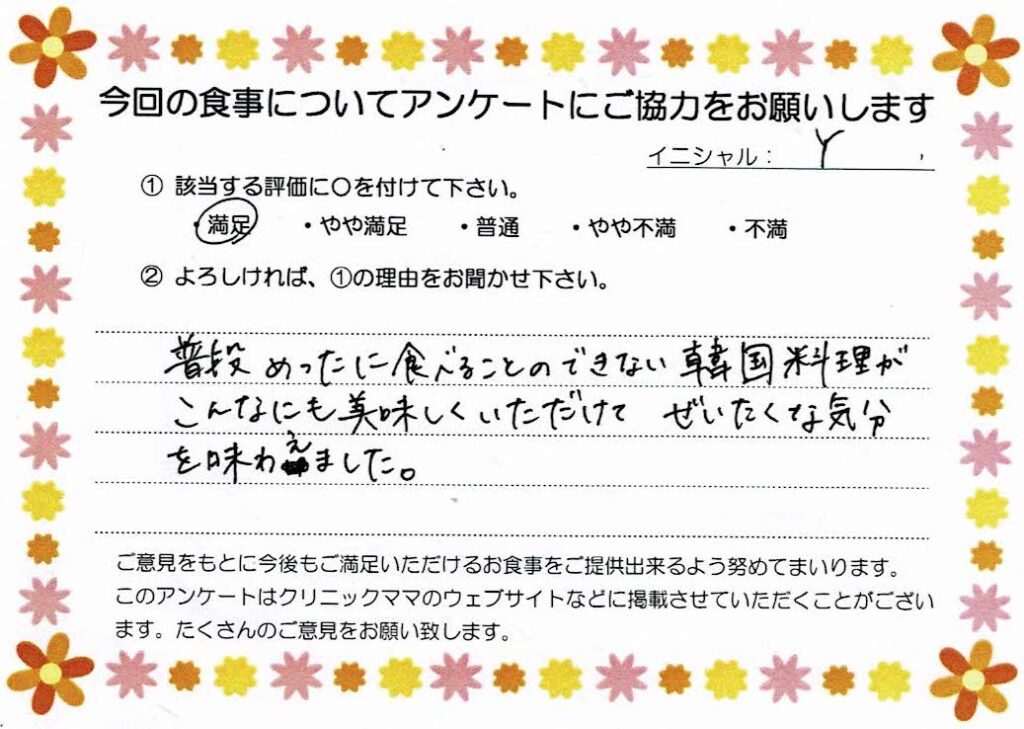 今回の食事についてアンケートにご協力をお願いします
イニシャル： Y
① 該当する評価に〇を付けて下さい。
・満足 ・やや満足 ・普通 ・やや不満 ・不満
② よろしければ、①の理由をお聞かせ下さい。
普段めったに食べることのできない韓国料理が
こんなにも美味しくいただけて ぜいたくな気分
を味わえました。
ご意見をもとに今後もご満足いただけるお食事をご提供出来るよう努めてまいります。
このアンケートはクリニックママのウェブサイトなどに掲載させていただくことがござい
ます。たくさんのご意見をお願い致します。